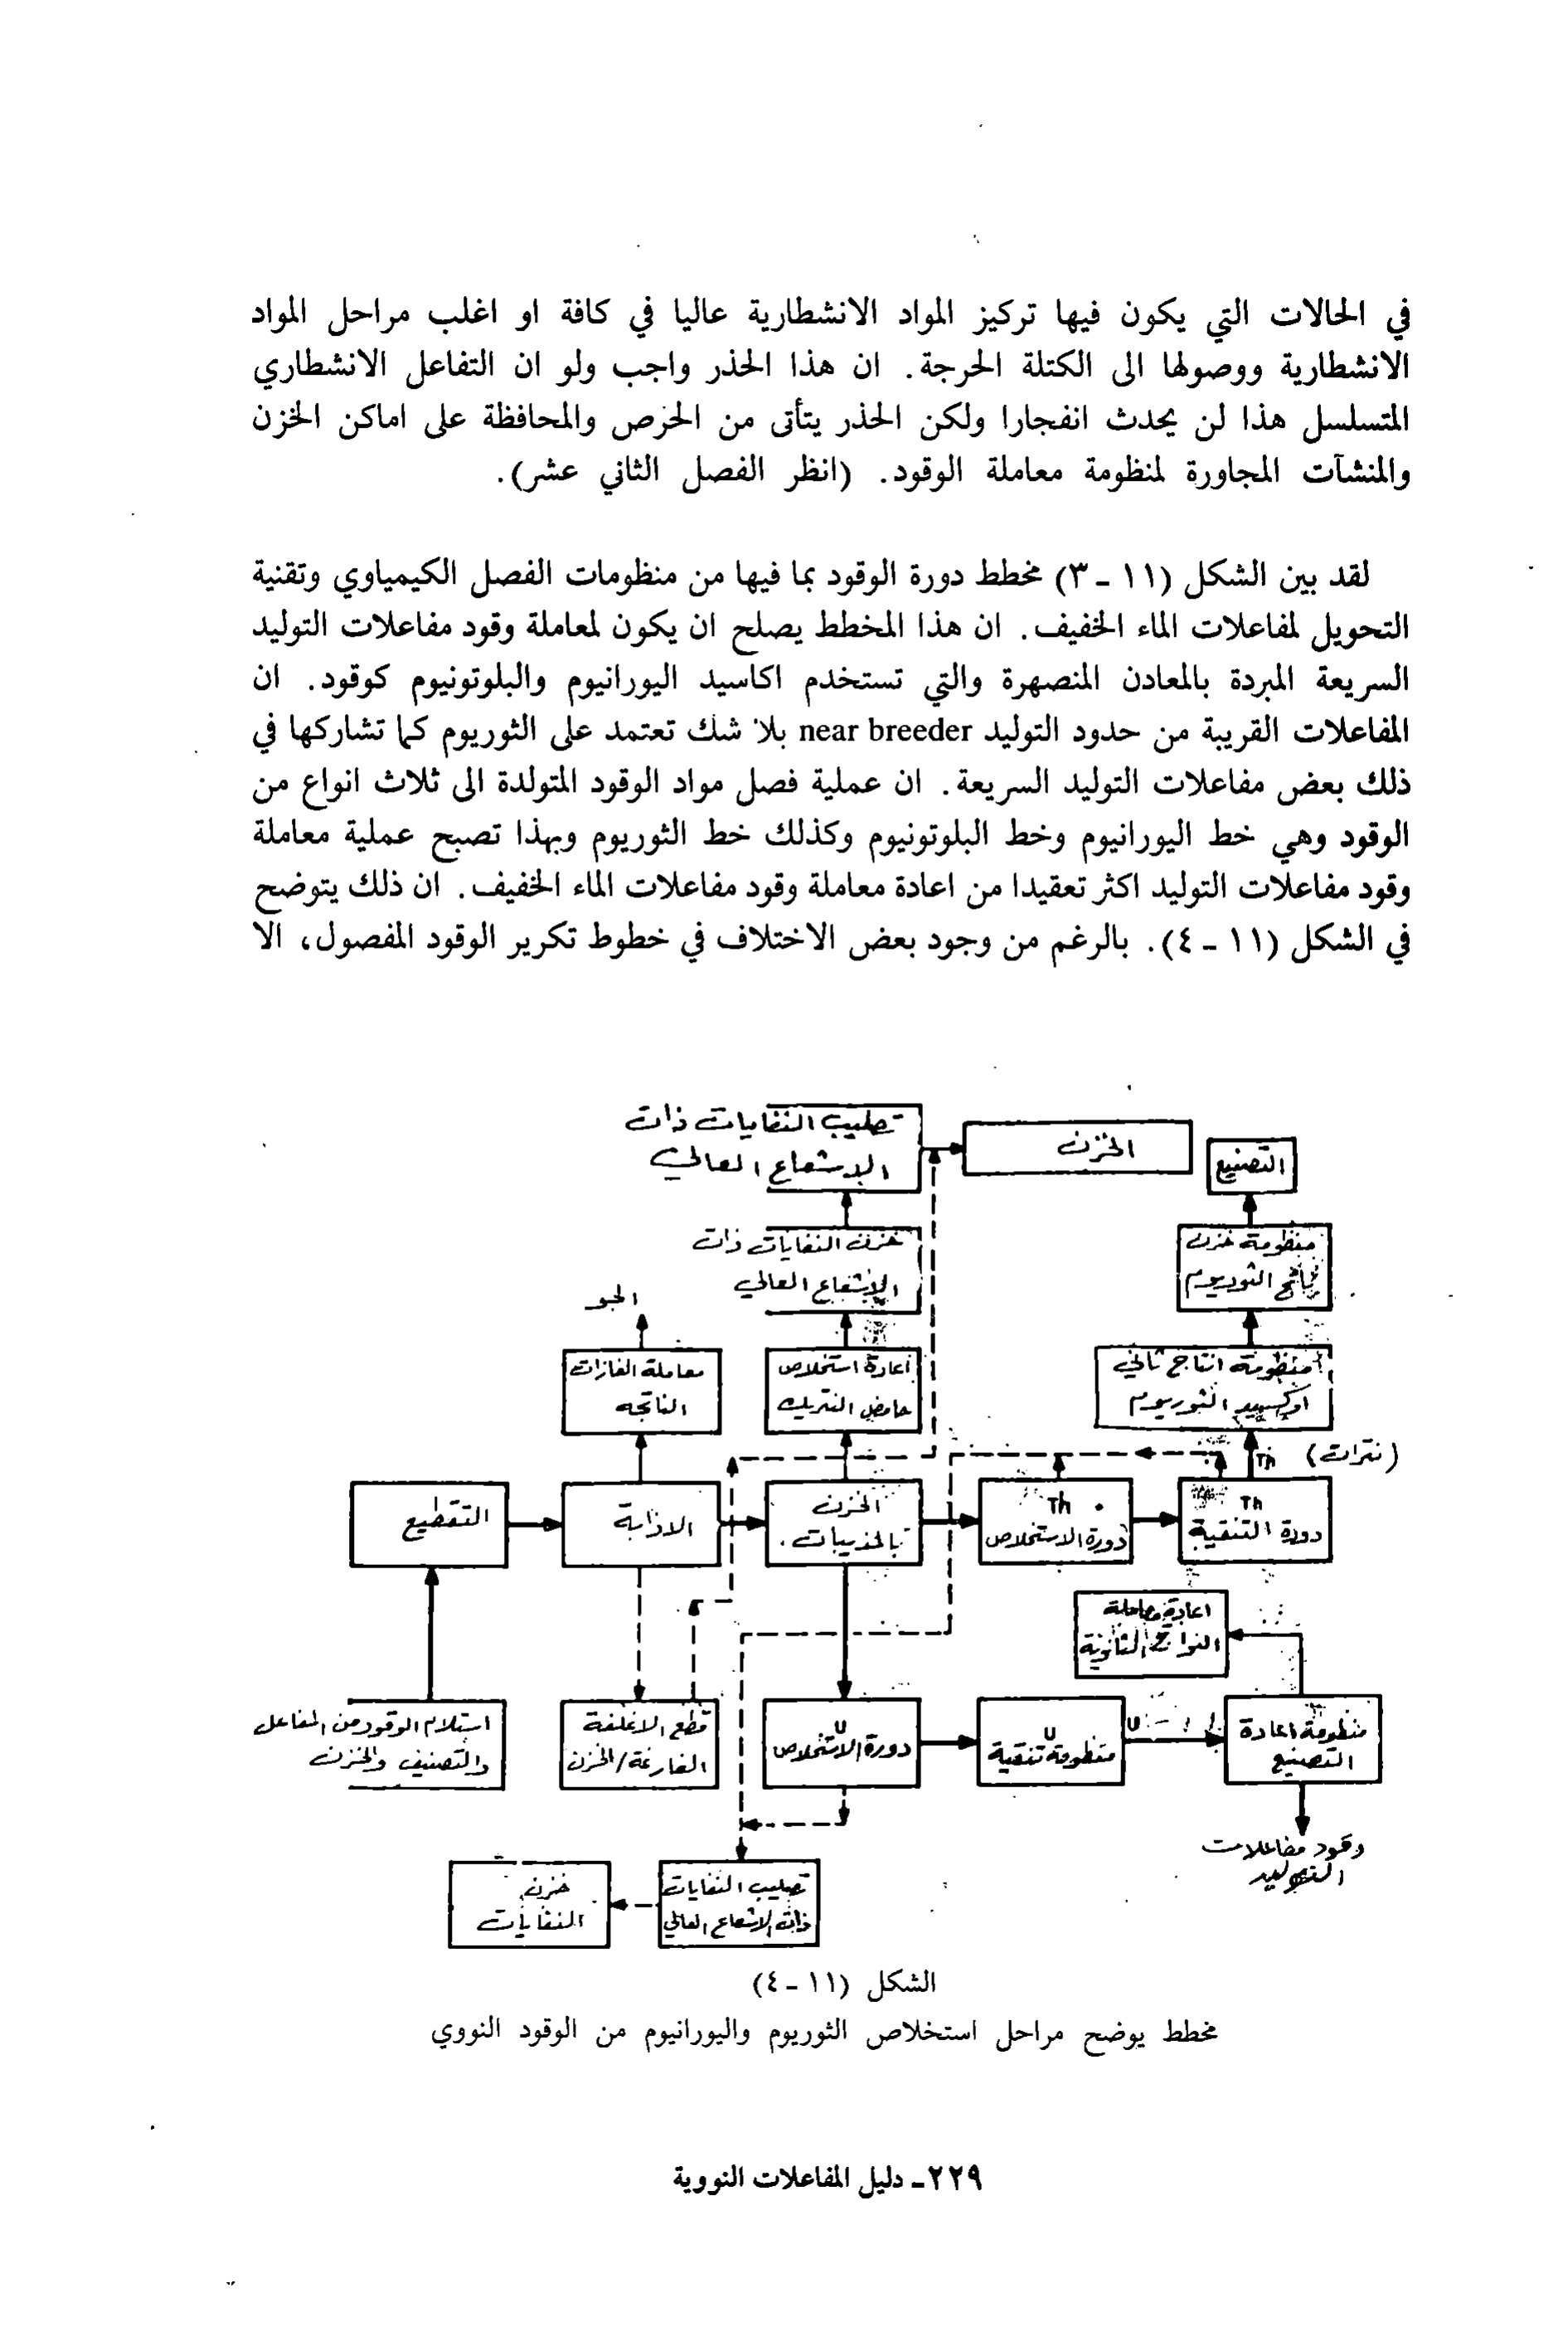 في الحالات التي يكون فيها تركيز المواد الانشطارية عاليا في كافة او اغلب مراحل المواد
الانشطارية ووصولها الى الكتلة الحرجة. ان هذا الحذر واجب ولو ان التفاعل الانشطاري
المتسلسل هذا لن يحدث انفجارا ولكن الحذر يتأتى من الحرص والمحافظة على اماكن الخزن
والمنشآت المجاورة لمنظومة معاملة الوقود. (انظر الفصل الثاني عشر).
لقد بين الشكل (١١ - ٣) مخطط دورة الوقود بما فيها من منظومات الفصل الكيمياوي وتقنية
التحويل لمفاعلات الماء الخفيف. ان هذا المخطط يصلح ان يكون لمعاملة وقود مفاعلات التوليد
السريعة المبردة بالمعادن المنصهرة والتي تستخدم اكاسيد اليورانيوم والبلوتونيوم كوقود. ان
المفاعلات القريبة من حدود التوليد near breeder بلا شك تعتمد على الثوريوم كما تشاركها في
ذلك بعض مفاعلات التوليد السريعة. ان عملية فصل مواد الوقود المتولدة الى ثلاث انواع من
الوقود وهي خط اليورانيوم وخط البلوتونيوم وكذلك خط الثوريوم وبهذا تصبح عملية معاملة
وقود مفاعلات التوليد اكثر تعقيدا من اعادة معاملة وقود مفاعلات الماء الخفيف. ان ذلك يتوضح
في الشكل (١١ - ٤). بالرغم من وجود بعض الاختلاف في خطوط تكرير الوقود المفصول، الا
التصنيع
الخزن
تصليب النفايات ذات
الاشعاع العالي
منظومة خزن
ناتج الثوريوم
خزن النفايات ذات
الاشعاع العالي
الجو
منظومة انتاج ثاني
اوكسيد الثوريوم
اعادة استخلاص
حامض النتريك
معاملة الغازات
الناتجه
(نترات) Th
Th
دورة التنقية
Th
دورة الاستخلاص
الخزن
بالمذيبات
الاذابة
التقطيع
اعادة معاملة
النواتج الثانوية
منظومة اعادة
التصنيع
U
U
منظومة تنقية
U
دورة الاستخلاص
قطع الاغلفة
الفارغة/الخزن
استلام الوقود من المفاعل
والتصنيف والخزن
وقود مفاعلات
التوليد
تصليب النفايات
ذات الاشعاع العالي
خزن
النفايات
الشكل (١١ - ٤)
مخطط يوضح مراحل استخلاص الثوريوم واليورانيوم من الوقود النووي
٢٢٩- دليل المفاعلات النووية